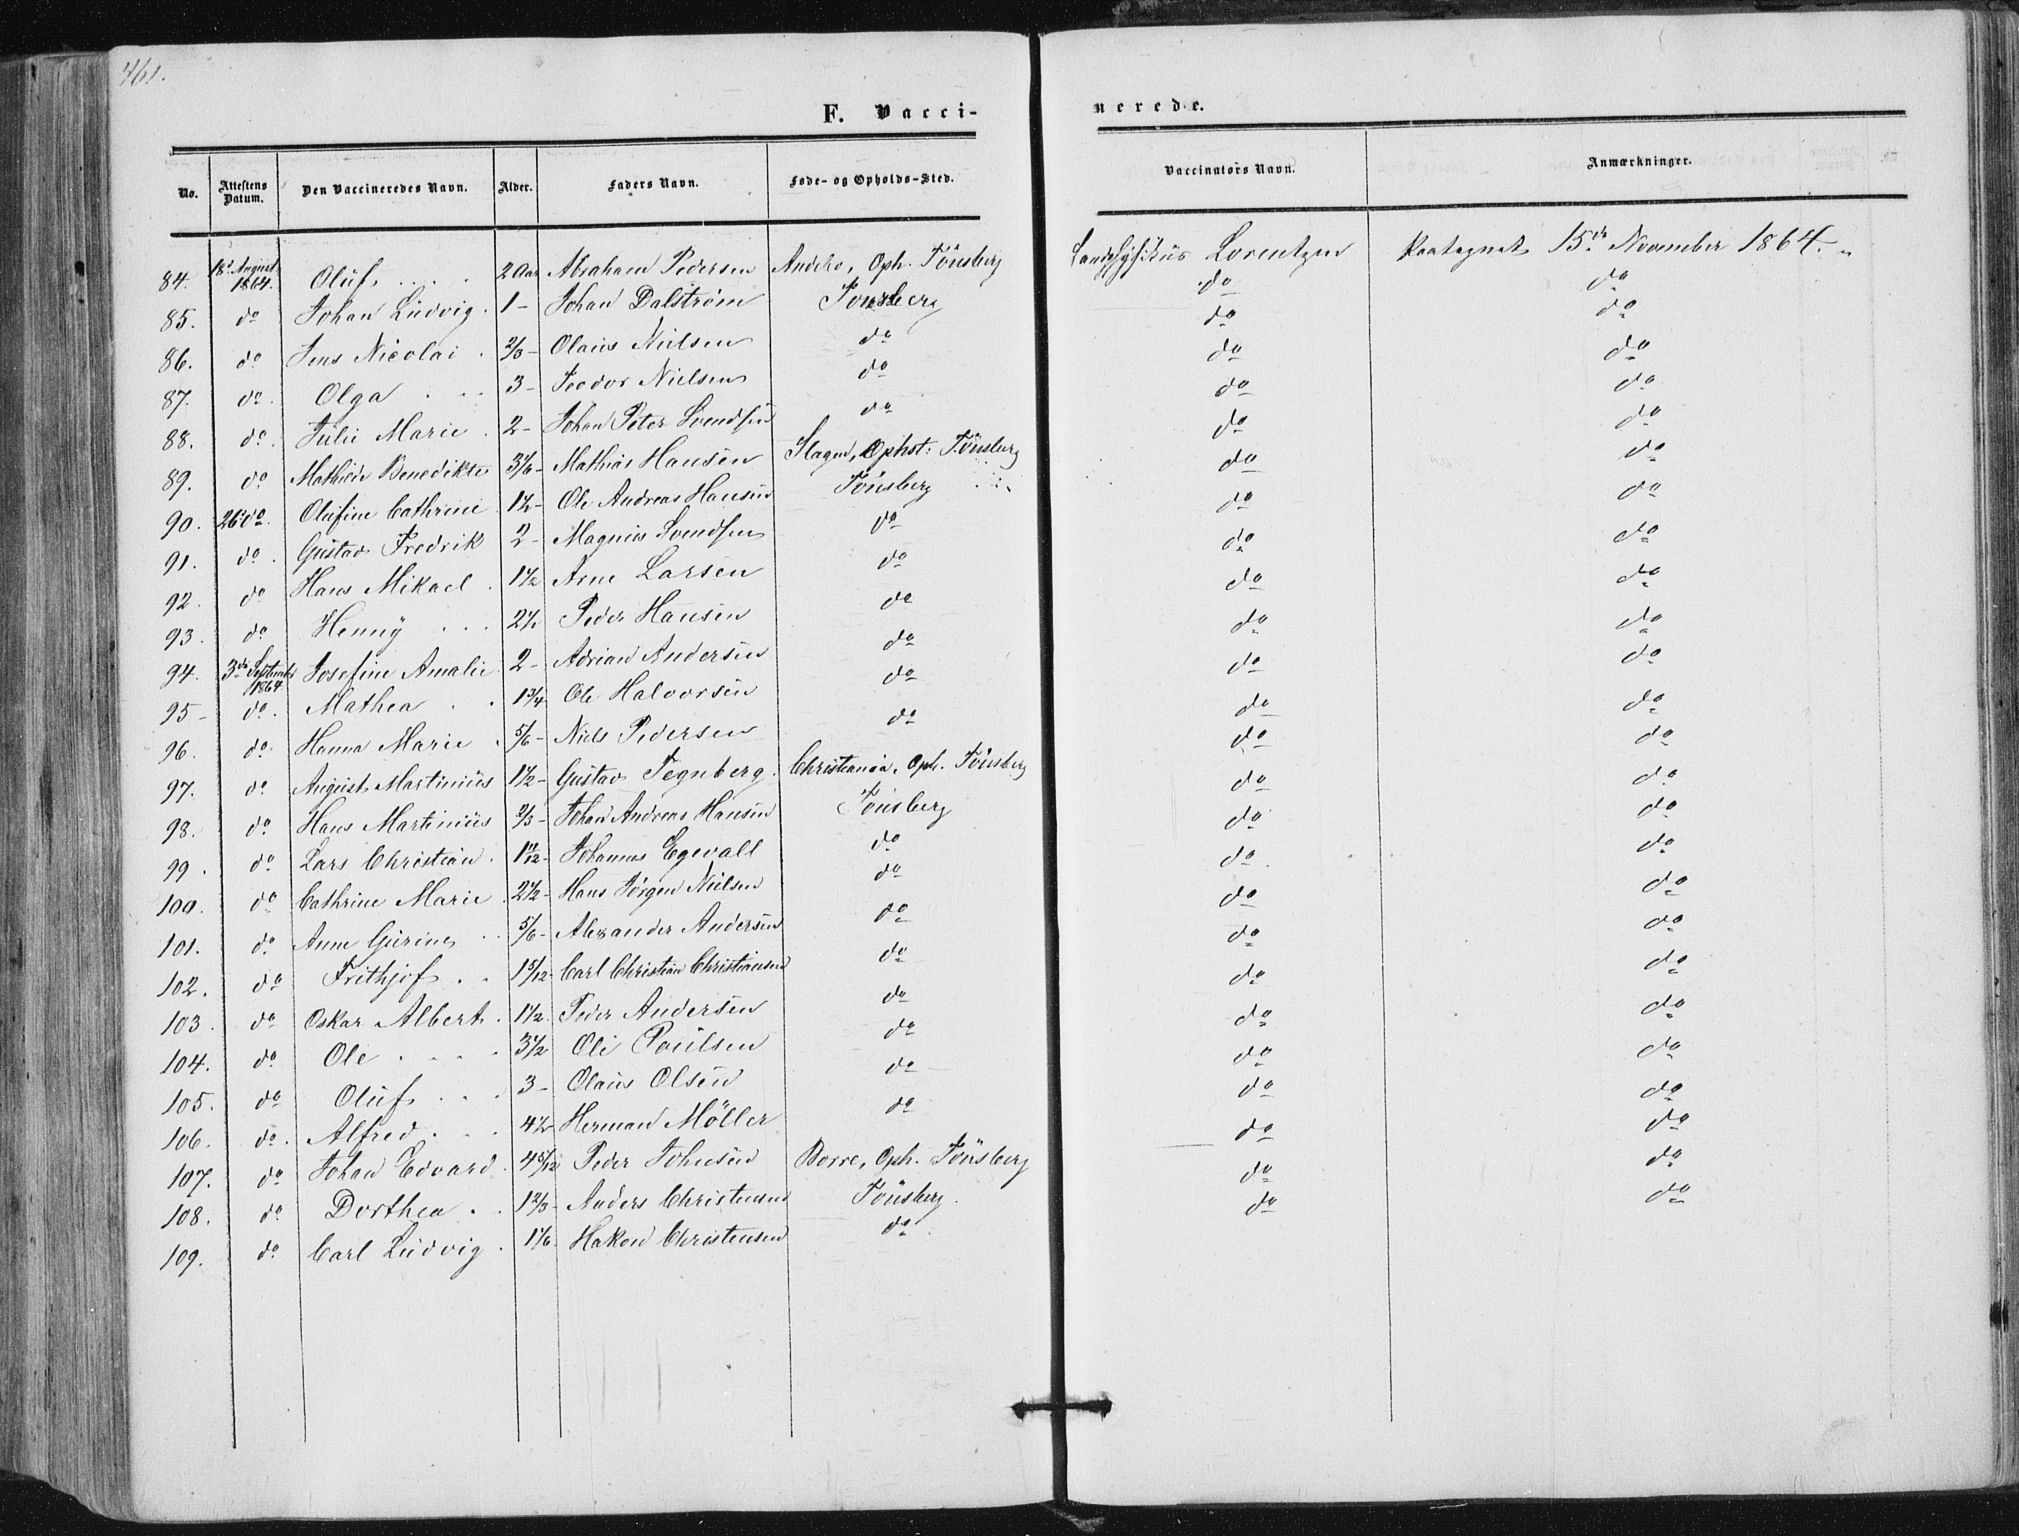 461.
F. Vacci-
nerede.
No. Attestens Datum. Den Vaccineredes Navn. Alder. Faders Navn. Føde- og Opholds-Sted. Vaccinators Navn. Anmærkninger.
84. 18d August 1864. Oluf 2 Aar Abraham Pedersen Oph. Tønsberg Landfysikus Lorentzen Paategnet 15de November 1864.
85. do Johan Ludvig 1 - Johan Dalstrøm Tønsberg do do
86. do Jens Nicolai 2/3 - Olaus Nielsen do do do
87. do Olga 3 - Teodor Nielsen do do do
88. do Julie Marie 2 - Johan Peter Svendsen do do do
89. do Mathilde Benedikte 3 1/6 - Mathias Hansen Slagen, Ophst: Tønsberg do do
90. 26d do Olufine Cathrine 1 1/2 - Ole Andreas Hansen Tønsberg do do
91. do Gustav Fredrik 2 - Magnus Svendsen do do do
92. do Hans Mikael 1 1/2 Arne Larsen do do do
93. do Henny 2 1/2 Peder Hansen do do do
94. 3de Septemb 1864 Josefine Amalie 2 - Adrian Andersen do do do
95 - do Mathea 1 3/4 Ole Halvorsen do do do
96. do Hanna Marie 5/6 - Niels Pedersen do do do
97. do August Martinius 1 1/2 - Gustav Tegnberg Christiania, Oph. Tønsberg do do
98. do Hans Martinius 2/3 - Johan Andreas Hansen Tønsberg do do
99. do Lars Christian 1 11/12 - Johannes Egevall do do do
100. do Cathrine Marie 2 1/2 - Hans Jørgen Nielsen do do do
101. do Anne Gurine 5/6 - Alexander Andersen do do do
102. do Frithjof 1 5/12 - Carl Christian Christiansen do do do
103. do Oskar Albert 1 1/2 Peder Andersen do do do
104. do Ole 3 1/2 Ole Poulsen do do do
105. do Oluf 3 - Olaus Olsen do do do
106. do Alfred 4 1/2 Herman Möller do do do
107. do Johan Edvard 4 5/12 Peder Johnsen Borre, Oph. Tønsberg do do
108. do Dorthea 1 2/3 - Anders Christensen Tønsberg do do
109. do Carl Ludvig 1 1/6 Hakon Christensen do do do